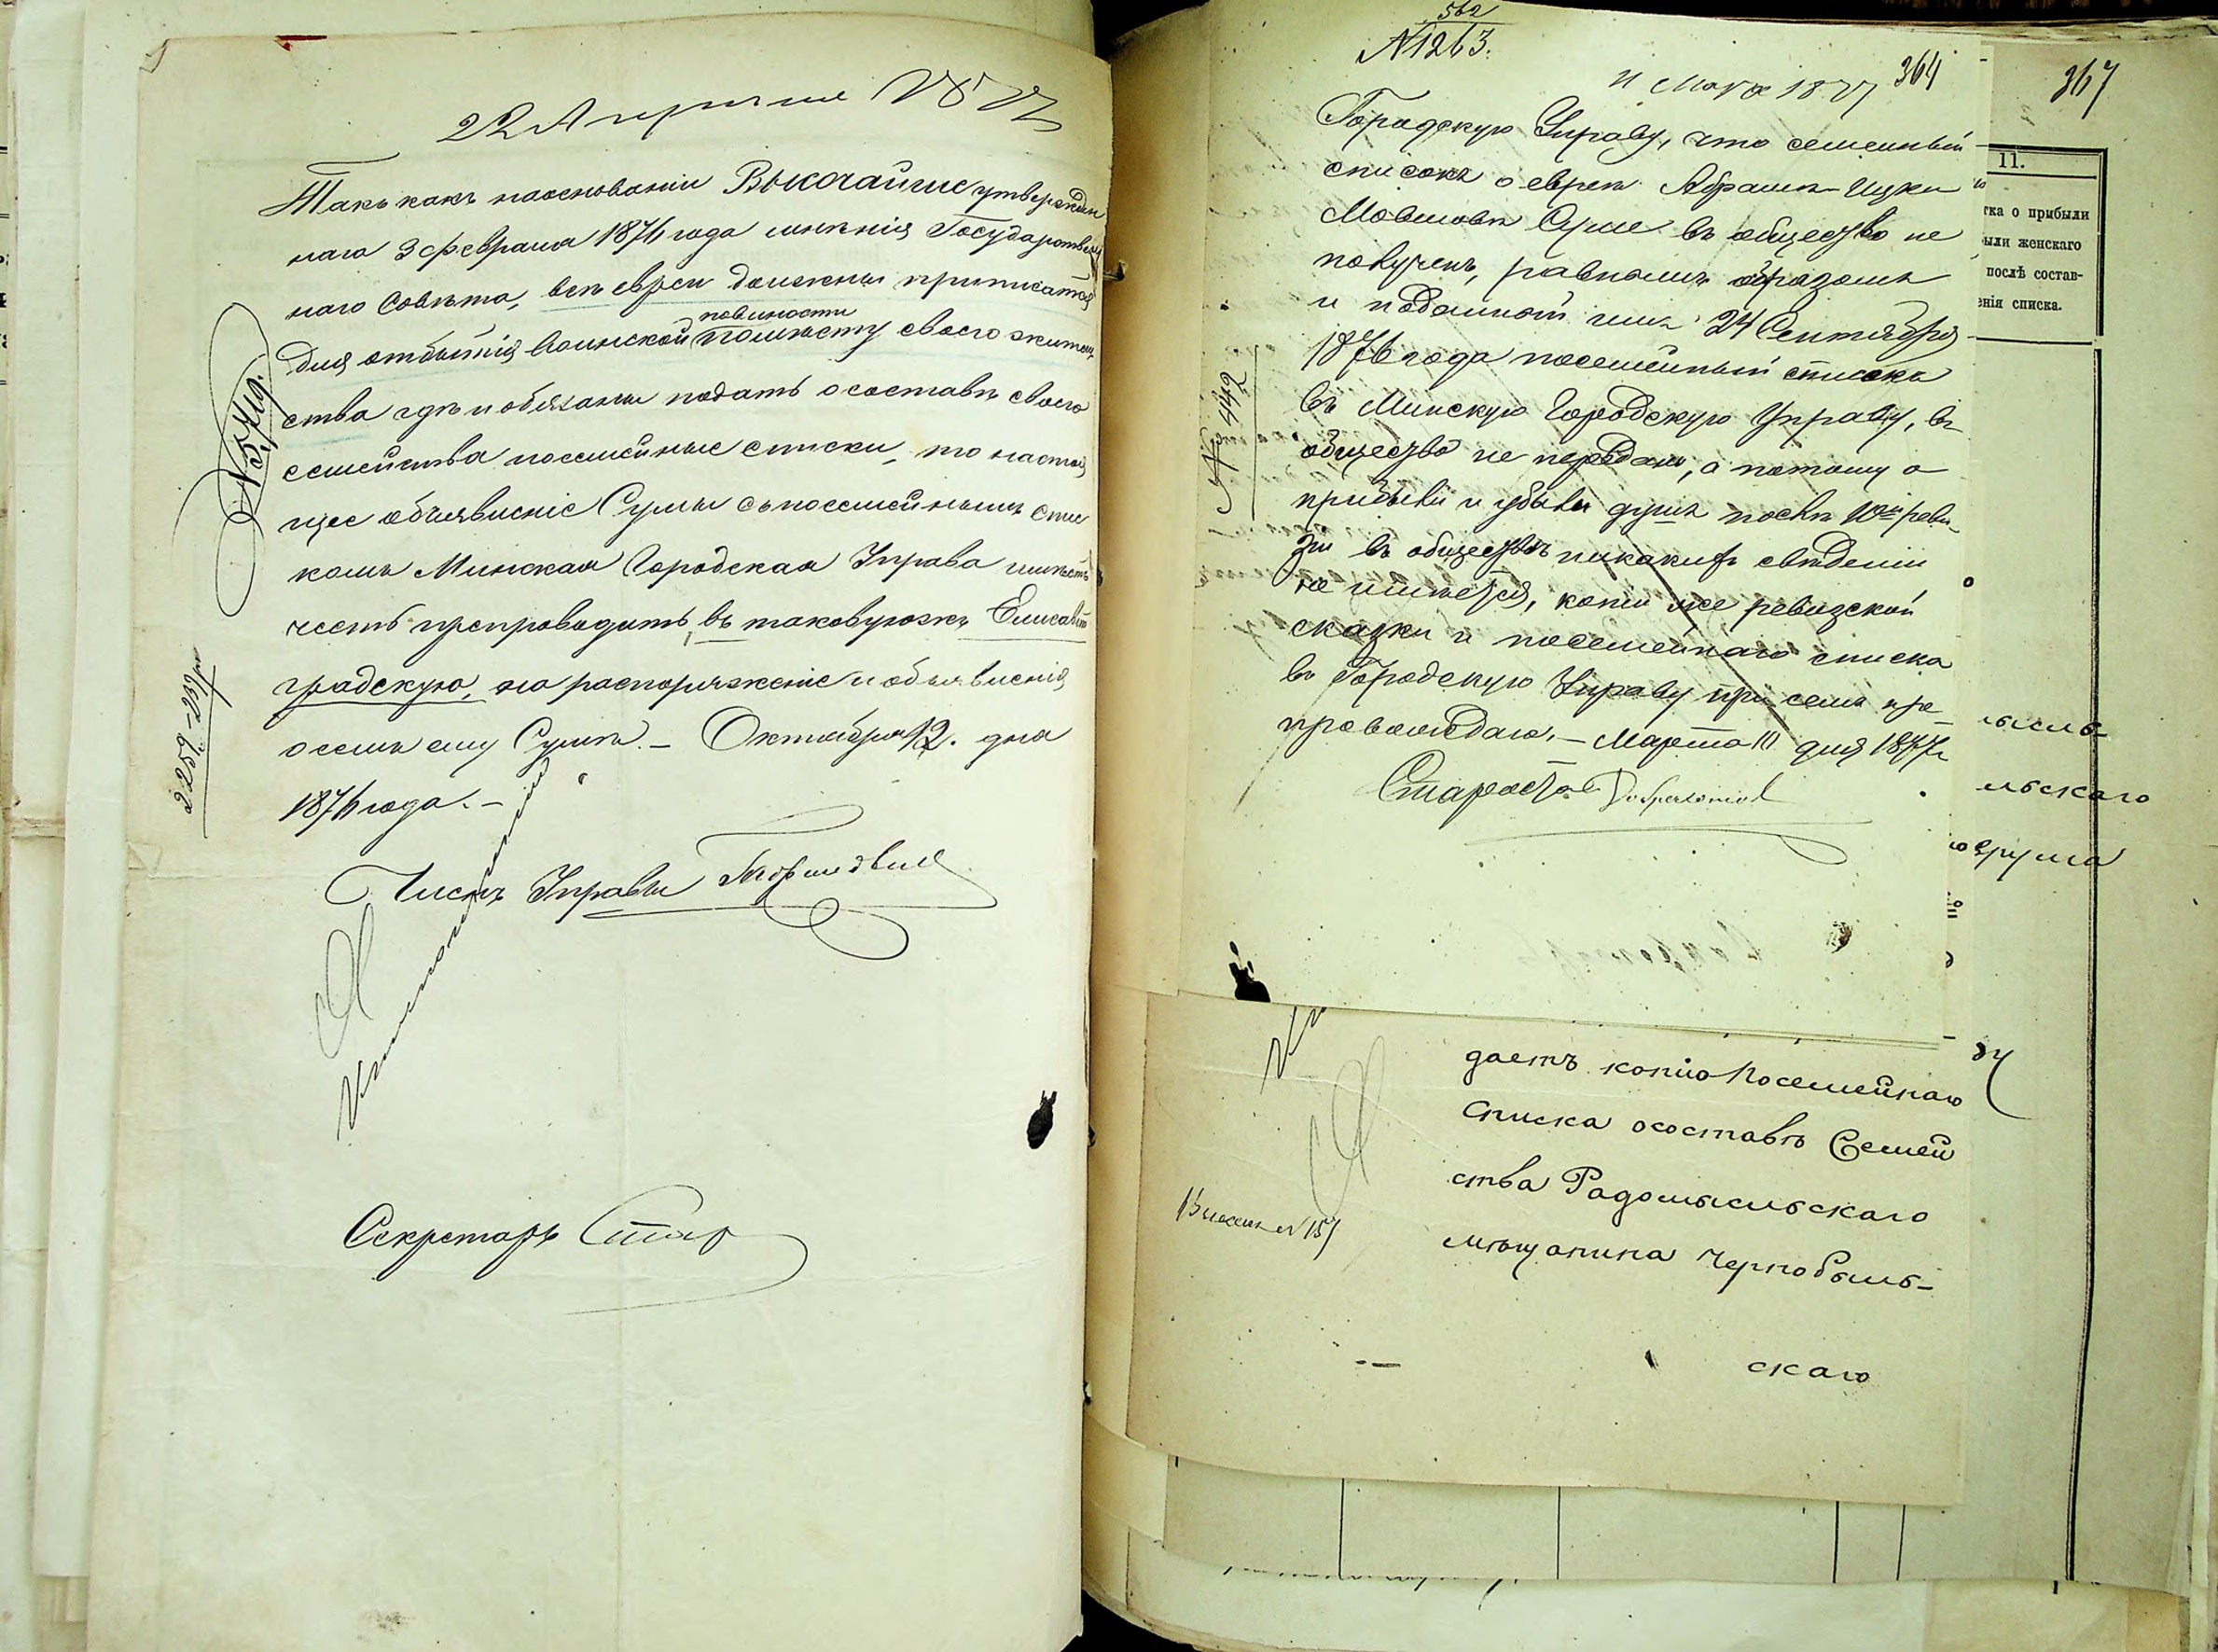 22 Апреля 1877
Такъ какъ наосновании Высочайше утвержден
наго 3 февраля 1876 года мнѣнія Государствен
наго Совѣта, всѣ евреи должны приписатся
повинности
для отбытія воинской помѣсту своего житель
ства гдѣ и обязаны подать о составѣ своего
семейства посемейные списки, то настоя
щее объявленіе Сумы съ посемейнымъ спис
комъ Минская Городская Управа имѣетъ
честь препроводить въ таковуюжъ Елисавет
градскую, на распоряженіе и объявленія
о семъ ему Сумѣ. — Октября 12. дня
1876 года. —
Членъ Управы
Секретарь
2259
562
N 1263.
11 Мар 1877
364
Городскую Управу, что семейный
списокъ о евреѣ Абрамѣ-Ицки
Мовшовѣ Суме въ общество не
полученъ, равнымъ образомъ
и поданный имъ 24 Сентября
1876 года посемейный списокъ
въ Минскую Городскую Управу, въ
общество не переданъ, а потому о
прибыли и убыли душъ послѣ 10й реви
зіи въ обществѣ никакихъ свѣденій
не имѣется, копіи же ревизской
сказки и посемейнаго списка
въ Городскую Управу при семъ пре
провождаю. — Марта 10 дня 1877 г
Староста
№ 442
даетъ копію Посемейнаго
списка осоставѣ Семей
ства Радомысльскаго
мѣщанина Чернобыль-
скаго
N 157
367
11.
тка о прибыли
ыли женскаго
послѣ состав-
енія списка.
ысль-
льскаго